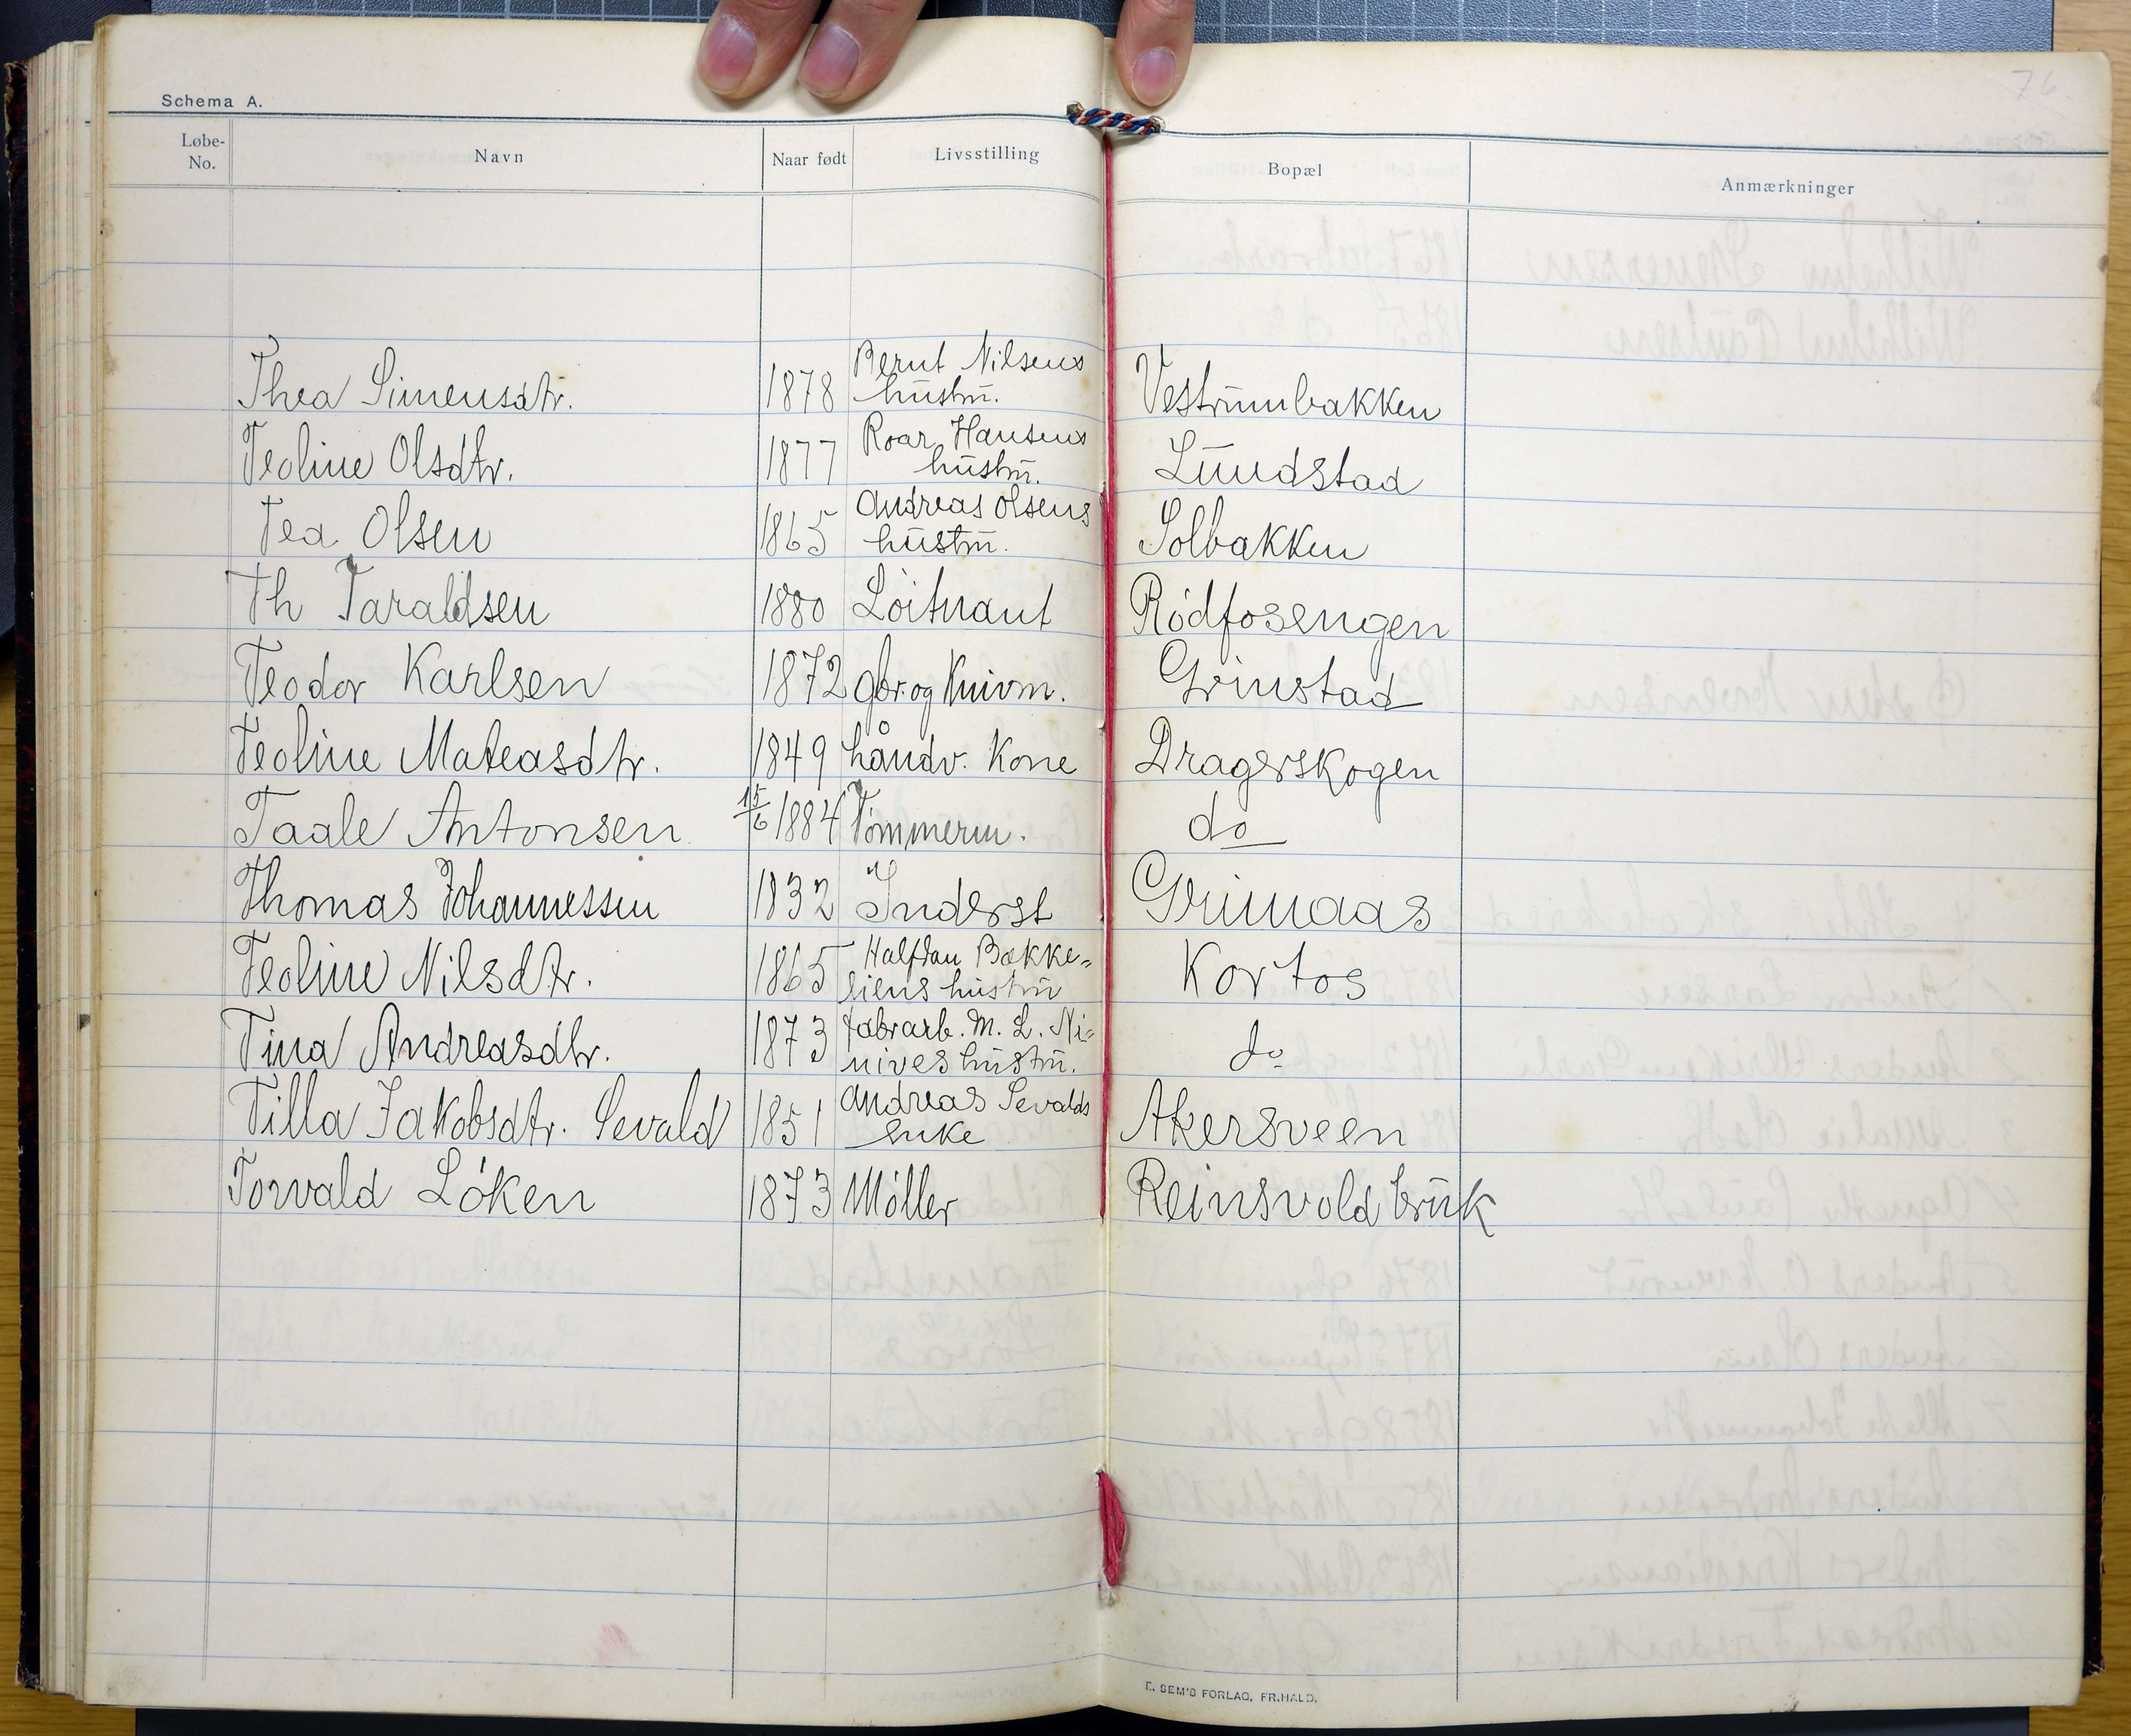 76
Schema A.
Løbe-No. Navn Naar født Livsstilling Bopæl Anmærkninger
Thea Simensdtr. 1878 Bernt Nilsens hustru. Vestrumbakken
Teoline Olsdtr. 1877 Roar Hansens hustru. Lundstad
Tea Olsen 1865 Andreas Olsens hustru. Solbakken
Th Taraldsen 1880 Löitnant Rödfosengen
Teodor Karlsen 1872 gbr. og Kuivm. Grinstad
Teoline Mateasdtr. 1849 håndv. Kone Dragerskogen
Taale Antonsen 15/6 1884 Tömmerm. do
Thomas Johannessen 1832 Inderst Grimaas
Teoline Nilsdtr. 1865 Halfdan Bække=liens hustru Kortos
Tina Andreasdtr. 1873 fabrarb. M. L. Ni=nives hustru. do
Tilla Jakobsdtr. Sevald 1851 Andreas Sevalds enke Akersveen
Torvald Löken 1873 Möller Reinsvold bruk
E. SEM'S FORLAG, FR.HALD.